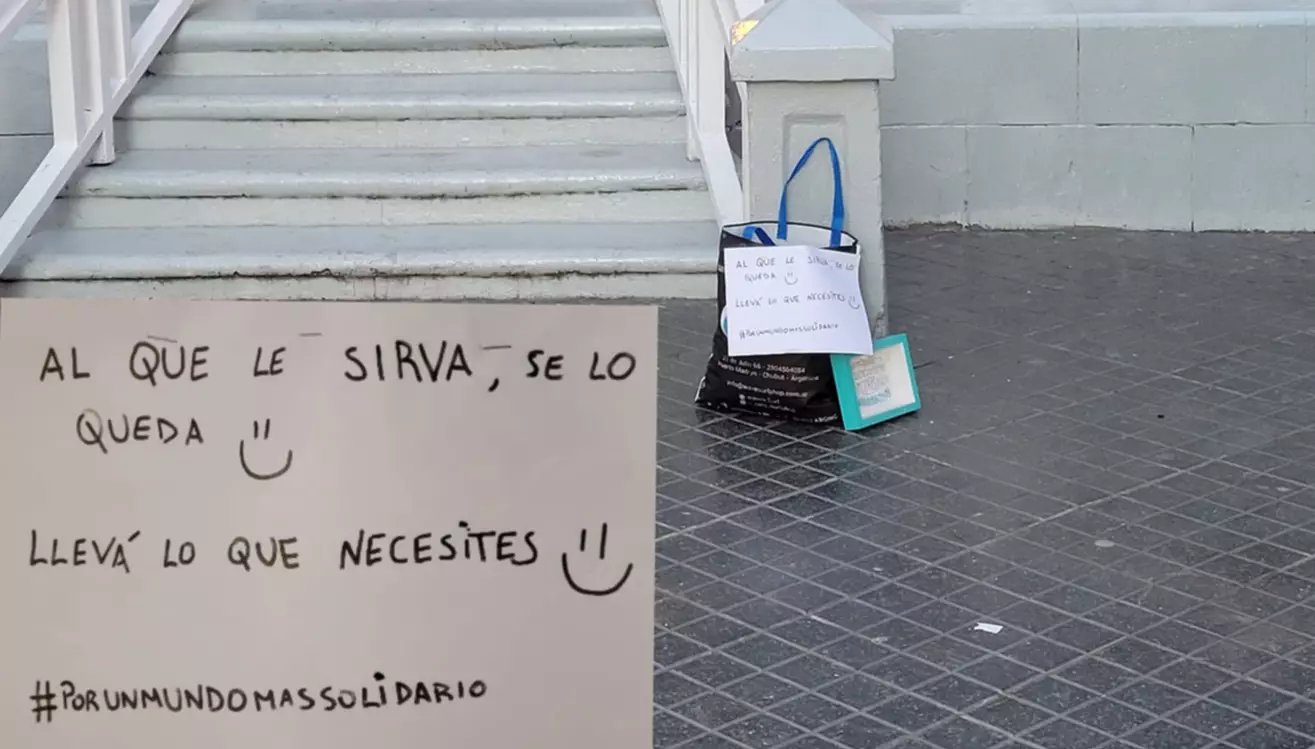 AL QUE LE SIRVA, SE LO
QUEDA
LLEVÁ LO QUE NECESITES
#PORUNMUNDOMASSOLIDARIO
AL QUE LE SIRVA, SE LO
QUEDA
LLEVÁ LO QUE NECESITES
#PORUNMUNDOMASSOLIDARIO
Puerto Madryn - Chubut - Argentina